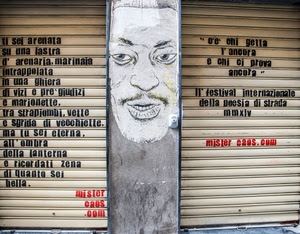 ti sei arenata
su una lastra
d' arenaria, marinaia
intrappolata
in una ghiera
di vizi e pre-giudizi
e marionette.
tra strapiombi, vette
e sgrida di vecchiette.
ma tu sei eterna,
all'ombra
della lanterna
e ricordati zena
di quanto sei
bella.
mister
caos
.com
"c'è chi getta
l'ancora
e chi ci prova
ancora"
II° festival internazionale
della poesia di strada
mmxiv
mister caos.com